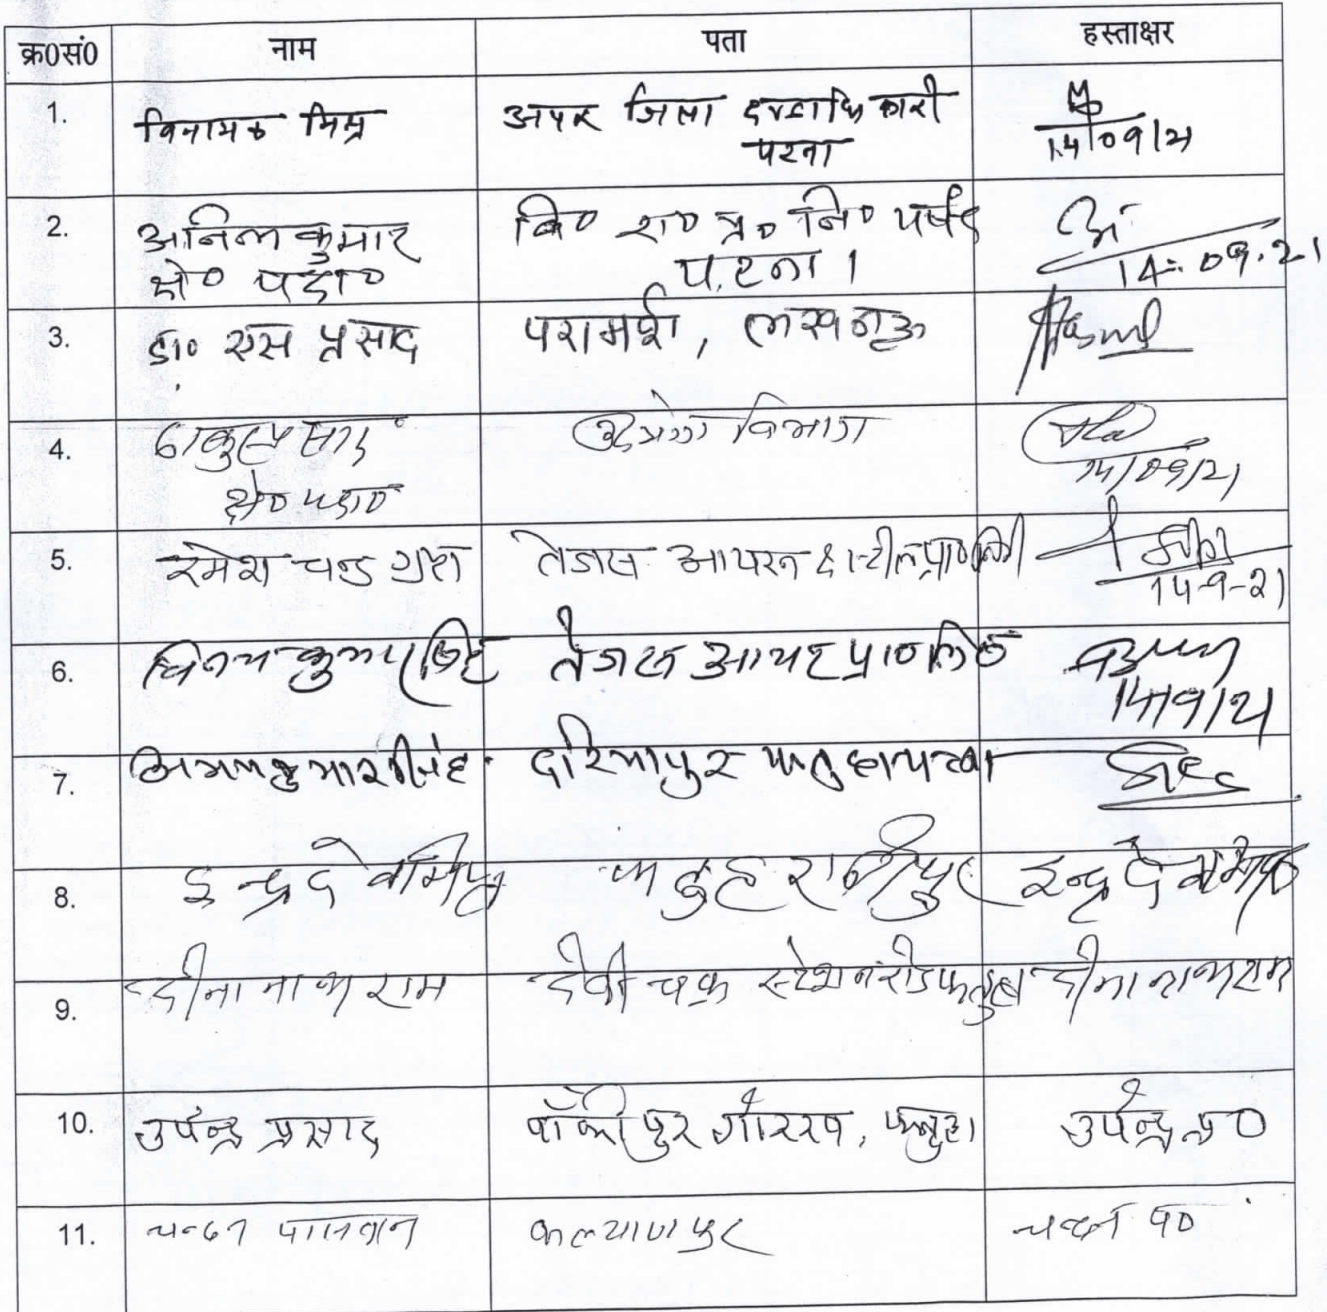 क्र0सं0 नाम पता हस्ताक्षर
1. विनायक मिश्र अपर जिला दण्डाधिकारी
पटना
14/09/21
2. अनिल कुमार बि० रा० प्र० नि० पर्षद
क्षे० पदा० पटना।
14.09.21
3. डा० एस प्रसाद परामर्शी, लखनऊ
4. उद्योग विभाग
क्षे० पदा०
14/09/21
5. रमेश चन्द्र गुप्ता तेजस आयरन & स्टील प्रा०लि०
14-9-21
6. विनय कुमार सिंह तेजस आयरन प्रा०लि०
14/9/21
7. कुमार सिंह दरियापुर फतुहा पटना
8. इन्द्रदेव फतुहा रानीपुर इन्द्रदेव
9. दीनानाथ राम देवीचक स्टेशन रोड फतुहा दीनानाथ राम
10. उपेन्द्र प्रसाद बाँकीपुर गोरख, फतुहा उपेन्द्र प्र०
11. चन्दन पासवान कल्याणपुर चन्दन पा०